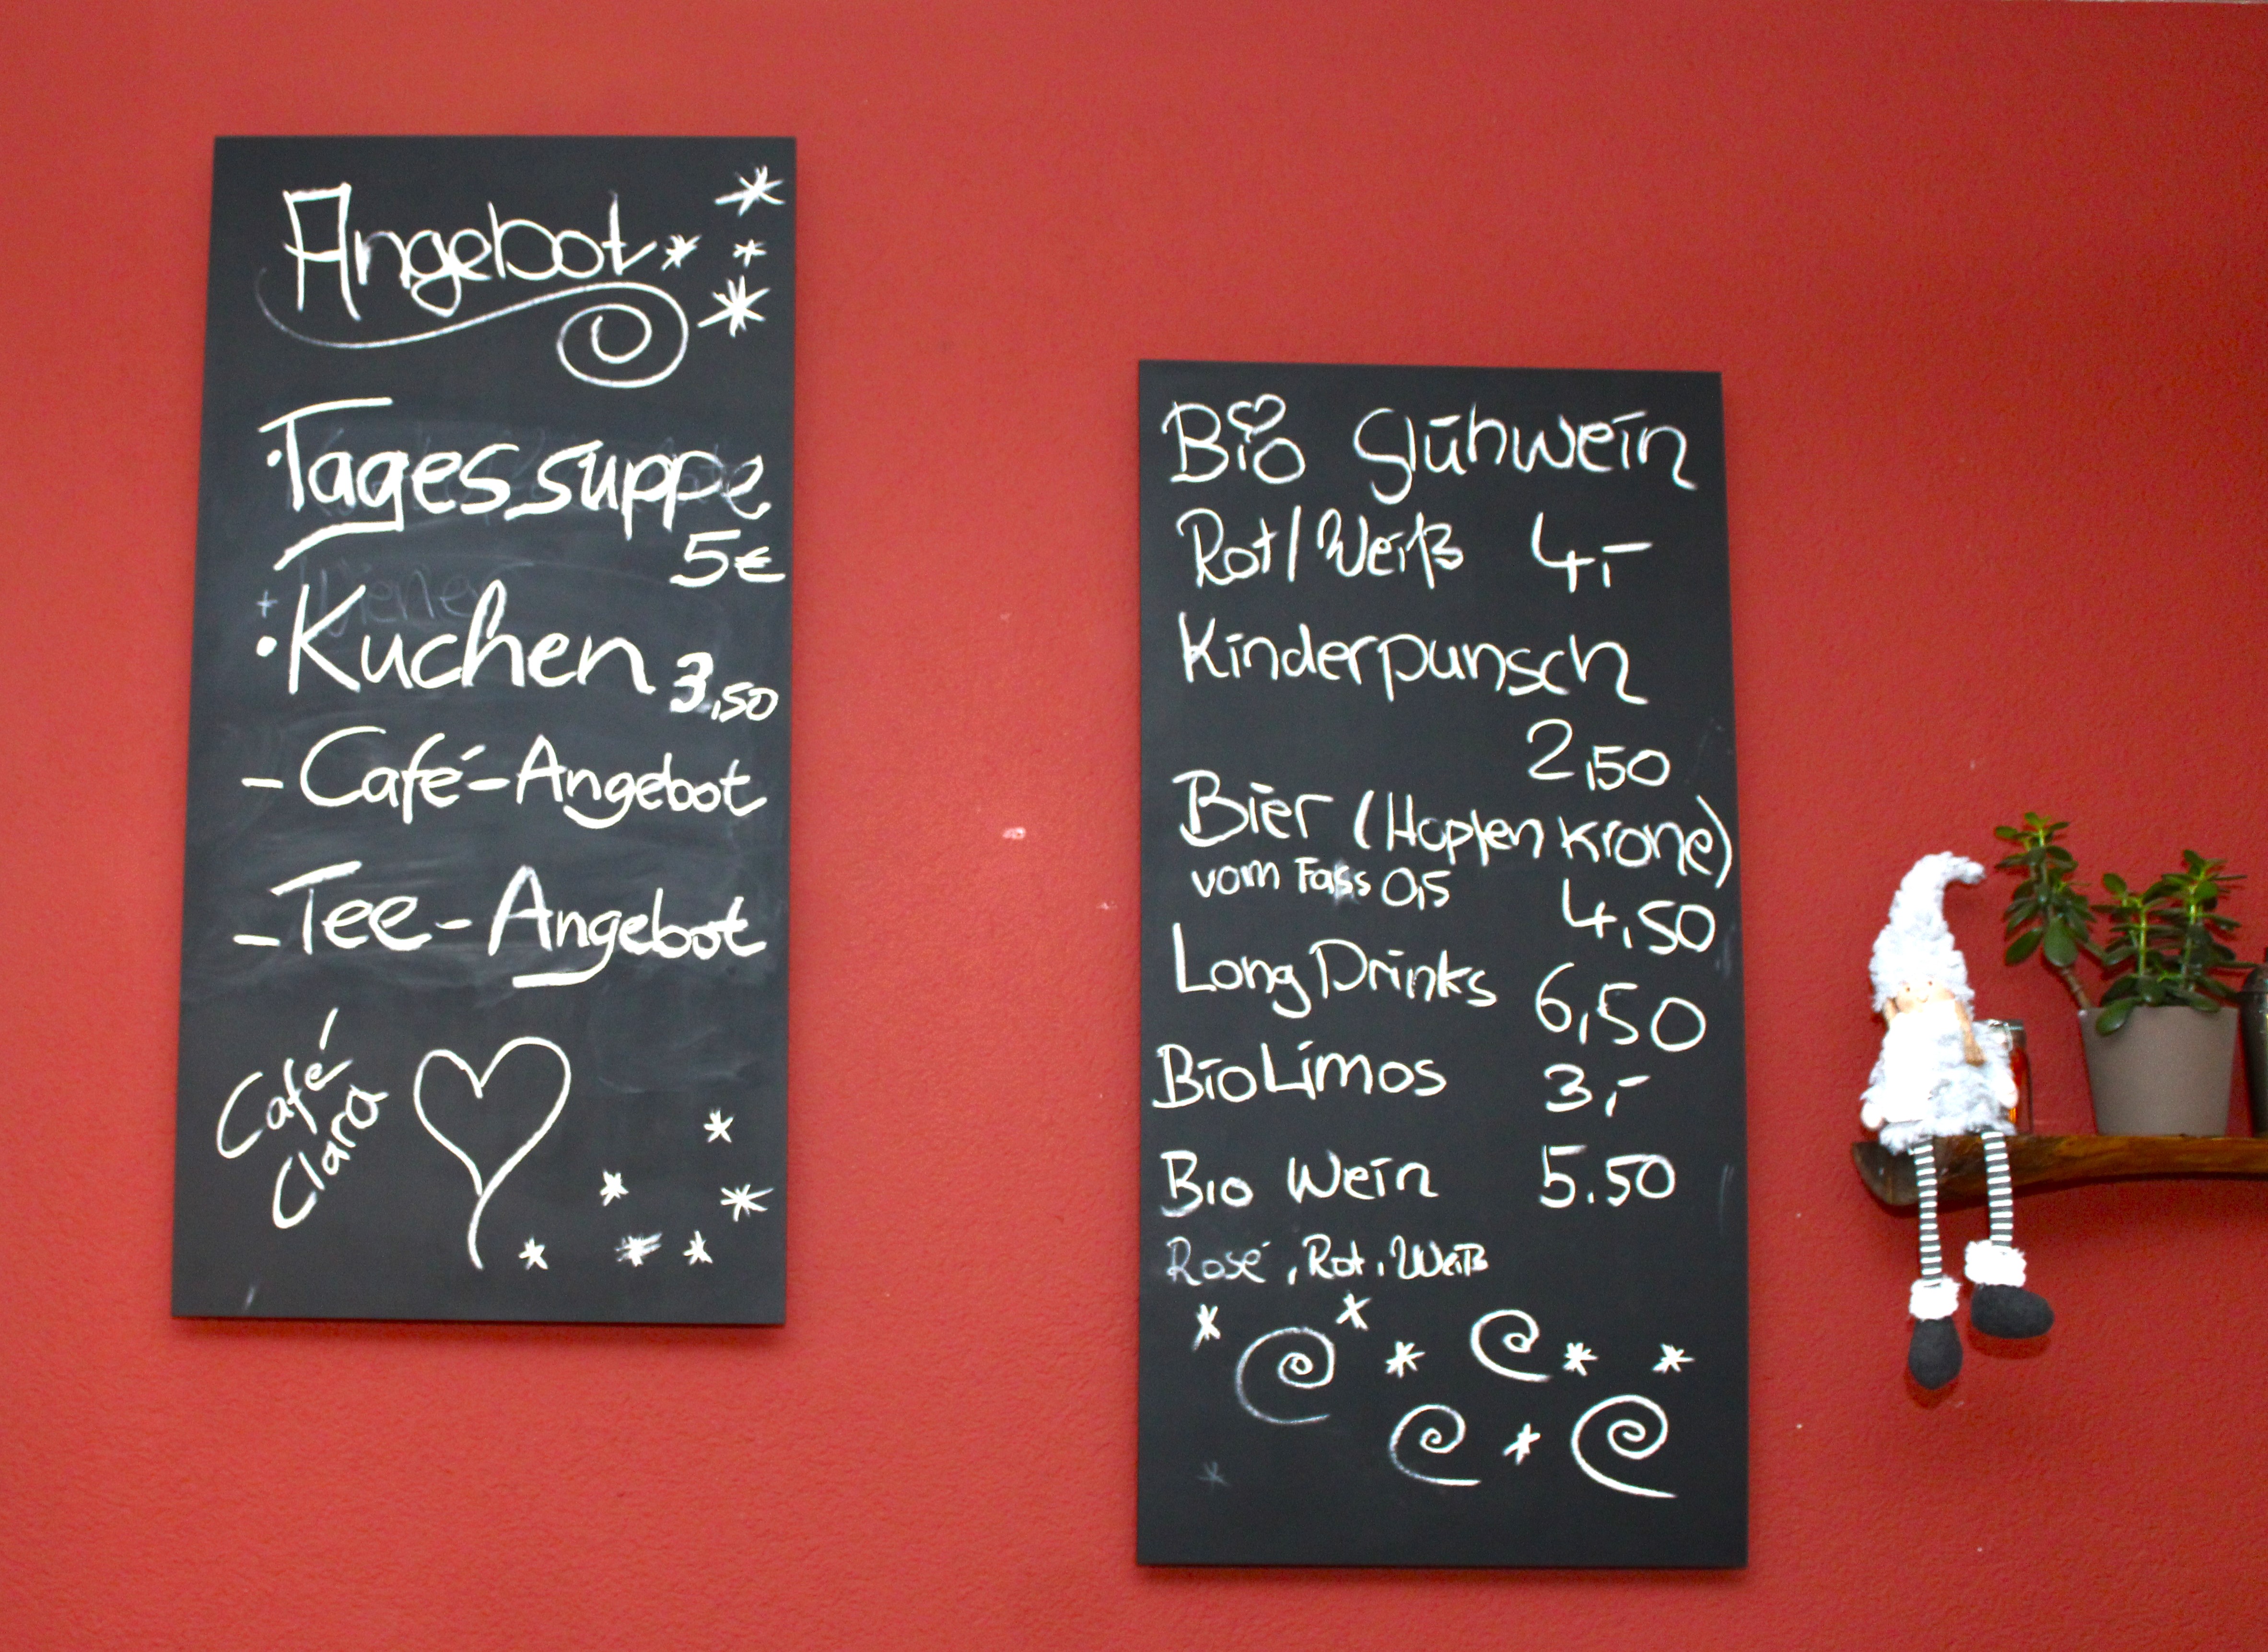 Angebot
·Tagessuppe
5€
·Kuchen 3,50
- Café-Angebot
- Tee-Angebot
Café
Clara
Bio Glühwein
Rot/Weiß 4,-
Kinderpunsch
2,50
Bier (Hopfenkrone)
vom Fass 0,5 4,50
LongDrinks 6,50
BioLimos 3,-
Bio Wein 5.50
Rosé, Rot, Weiß